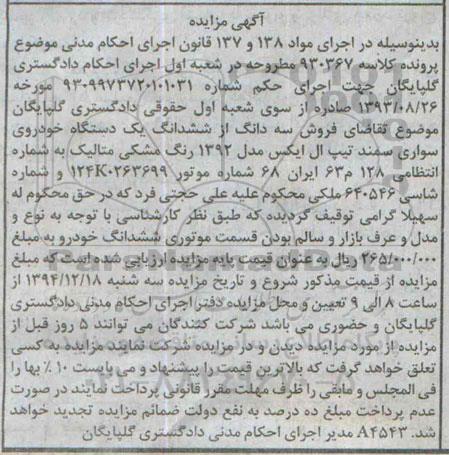 آگهی مزایده
بدینوسیله در اجرای مواد ۱۳۸ و ۱۳۷ قانون اجرای احکام مدنی موضوع
پرونده کلاسه ۹۳۰۳۶۷ مطروحه در شعبه اول اجرای احکام دادگستری
گلپایگان جهت اجرای حکم شماره ۹۳۰۹۹۷۳۷۲۰۱۰۱۰۳۱ مورخه
۱۳۹۳/۰۸/۲۶ صادره از سوی شعبه اول حقوقی دادگستری گلپایگان
موضوع تقاضای فروش سه دانگ از ششدانگ یک دستگاه خودروی
سواری سمند تیپ ال ایکس مدل ۱۳۹۲ رنگ مشکی متالیک به شماره
انتظامی ۱۲۸ م۶۳ ایران ۶۸ شماره موتور ۱۲۴K۰۲۶۳۶۹۹ و شماره
شاسی ۶۴۰۵۴۶ ملکی محکوم علیه علی حجتی فرد که در حق محکوم له
سهیلا گرامی توقیف گردیده که طبق نظر کارشناسی با توجه به نوع و
مدل و عرف بازار و سالم بودن قسمت موتوری ششدانگ خودرو به مبلغ
۲۶۵/۰۰۰/۰۰۰ ریال به عنوان قیمت پایه مزایده ارزیابی شده است که مبلغ
مزایده از قیمت مذکور شروع و تاریخ مزایده سه شنبه ۱۳۹۴/۱۲/۱۸ از
ساعت ۸ الی ۹ تعیین و محل مزایده دفتر اجرای احکام مدنی دادگستری
گلپایگان و حضوری می باشد شرکت کنندگان می توانند ۵ روز قبل از
مزایده از مورد مزایده دیدن و در مزایده شرکت نمایند مزایده به کسی
تعلق خواهد گرفت که بالاترین قیمت را پیشنهاد و می بایست ۱۰ ٪ بها را
فی المجلس و مابقی را ظرف مهلت مقرر قانونی پرداخت نمایند در صورت
عدم پرداخت مبلغ ده درصد به نفع دولت ضمائم مزایده تجدید خواهد
شد. A۴۵۴۳ مدیر اجرای احکام مدنی دادگستری گلپایگان